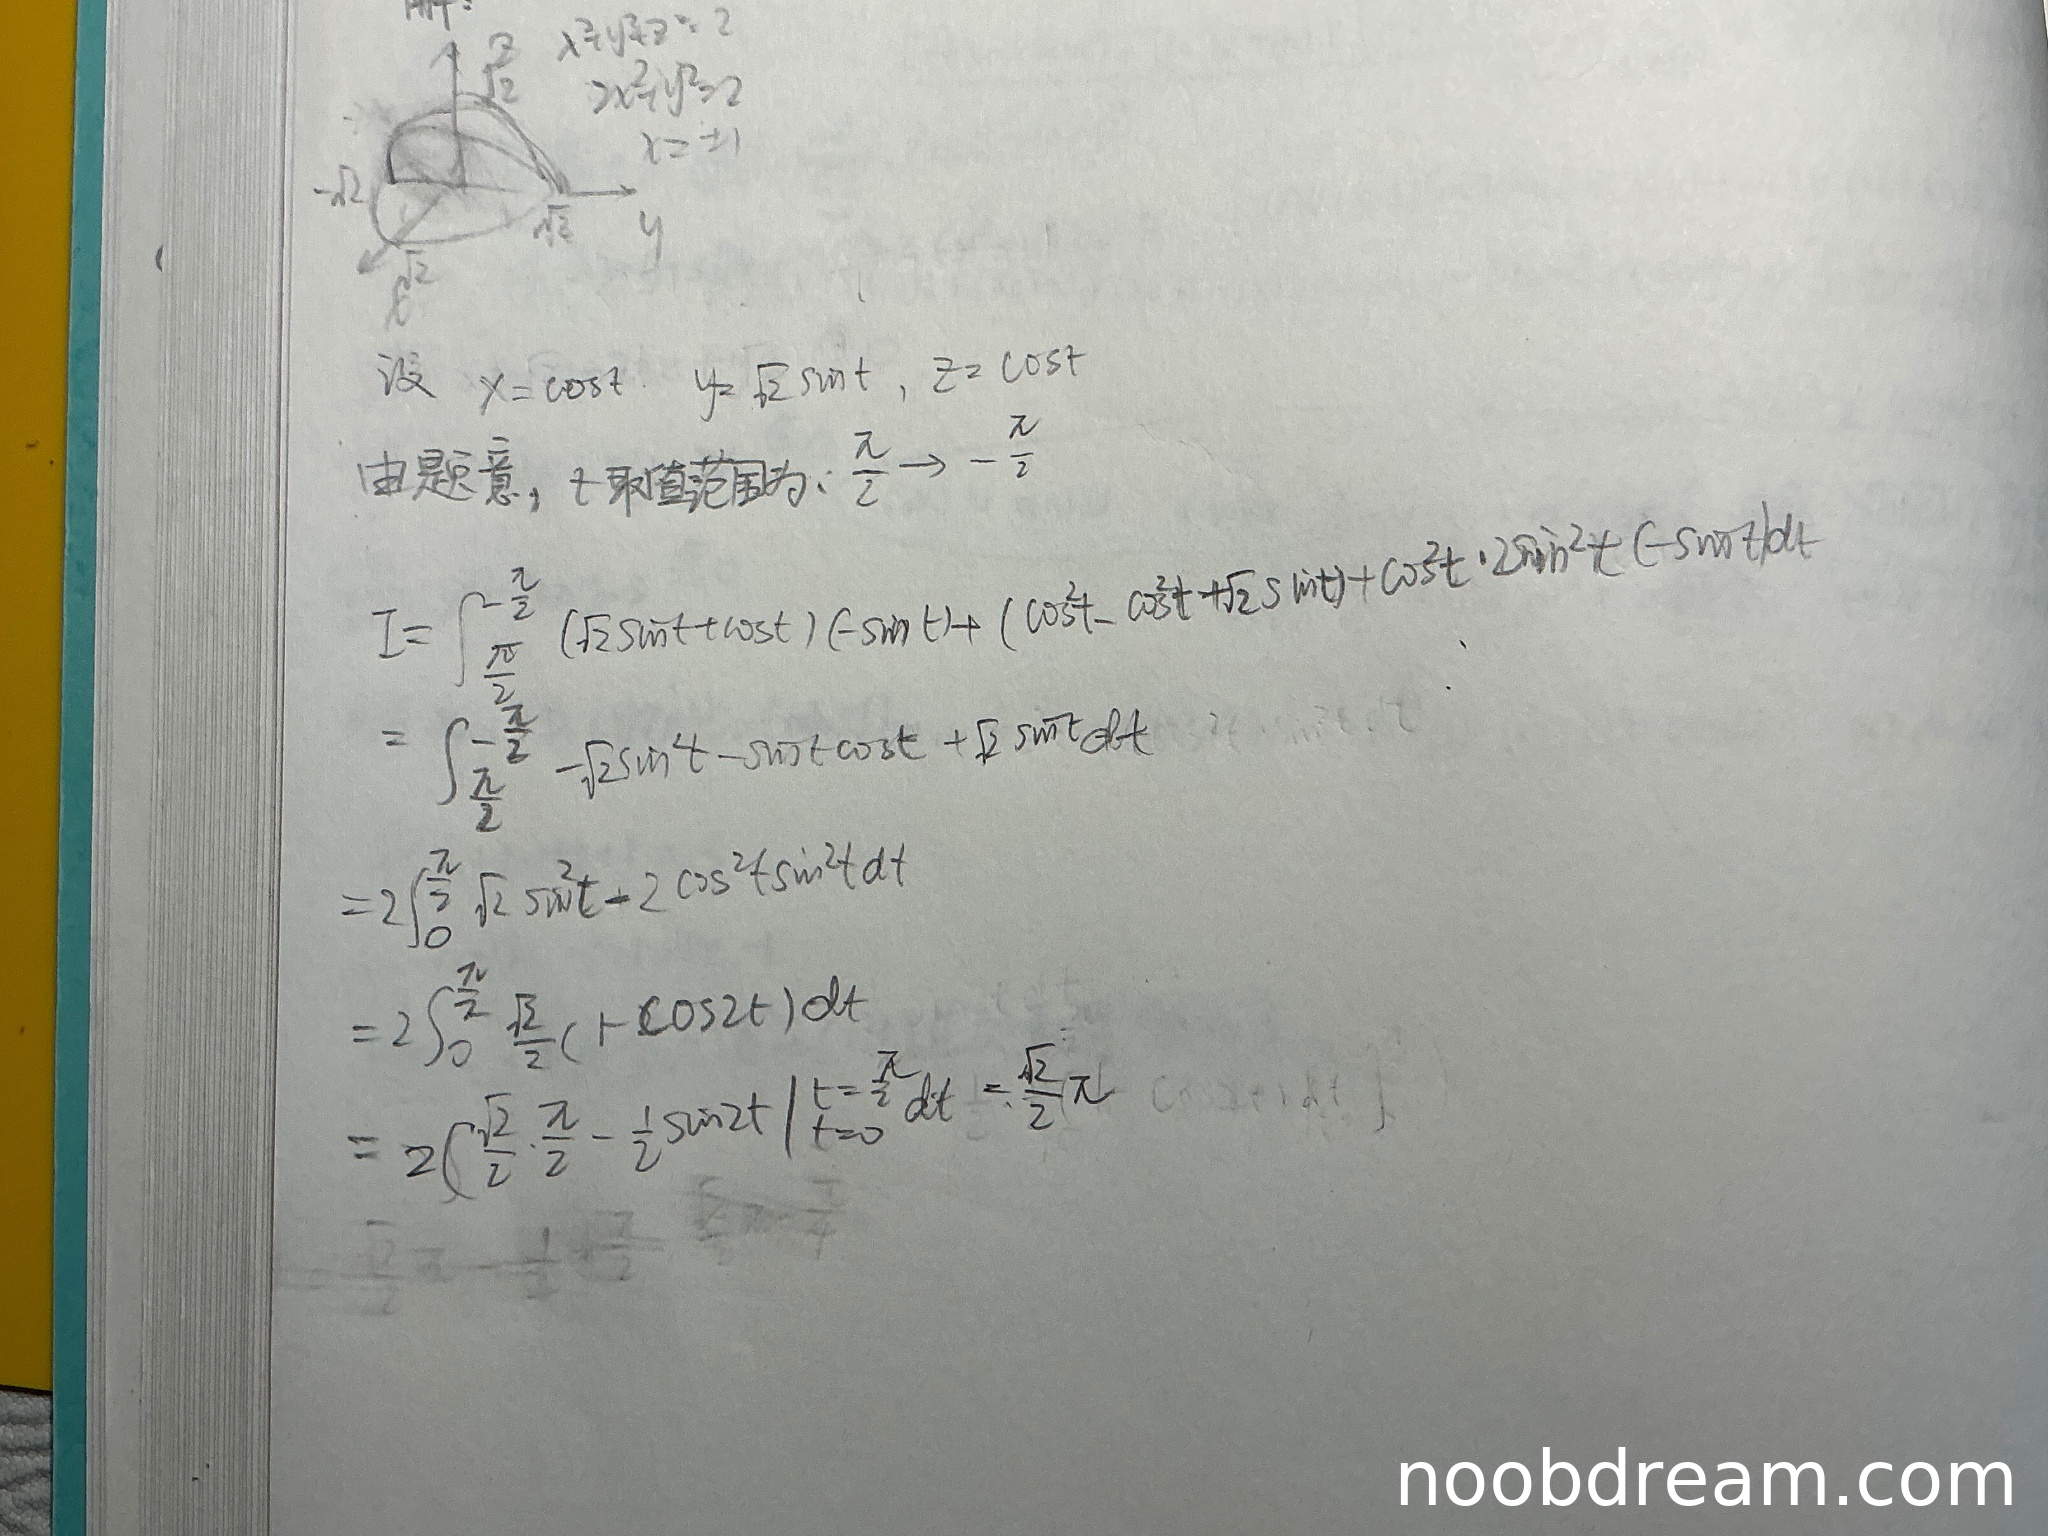 z
√2
x²+y²+z²=2
2x²+y²=2
x=±1
-√2
√2
y
√2
x
设 x=cost. y=√2 sint, z=cost
由题意, t取值范围为: π/2 → -π/2
I= ∫_{π/2}^{-π/2} (√2sint+cost)(-sint)+(cos²t-cos²t+√2sint)+cos²t·2sin²t(-sint)dt
= ∫_{π/2}^{-π/2} -√2sin²t-sintcost+√2 sint dt
=2∫_0^{π/2} √2 sin²t-2cos²tsin²tdt
=2∫_0^{π/2} √2/2(1-cos2t)dt
= 2(√2/2·π/2-1/2 sin2t|_{t=0}^{t=π/2}dt = √2/2 π
noobdream.com